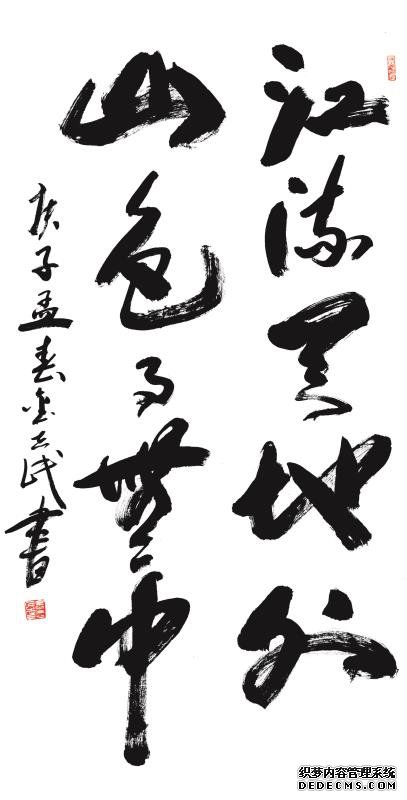 江流天地外
山色有無中
庚子孟春金民書
织梦内容管理系统
DEDECMS.COM